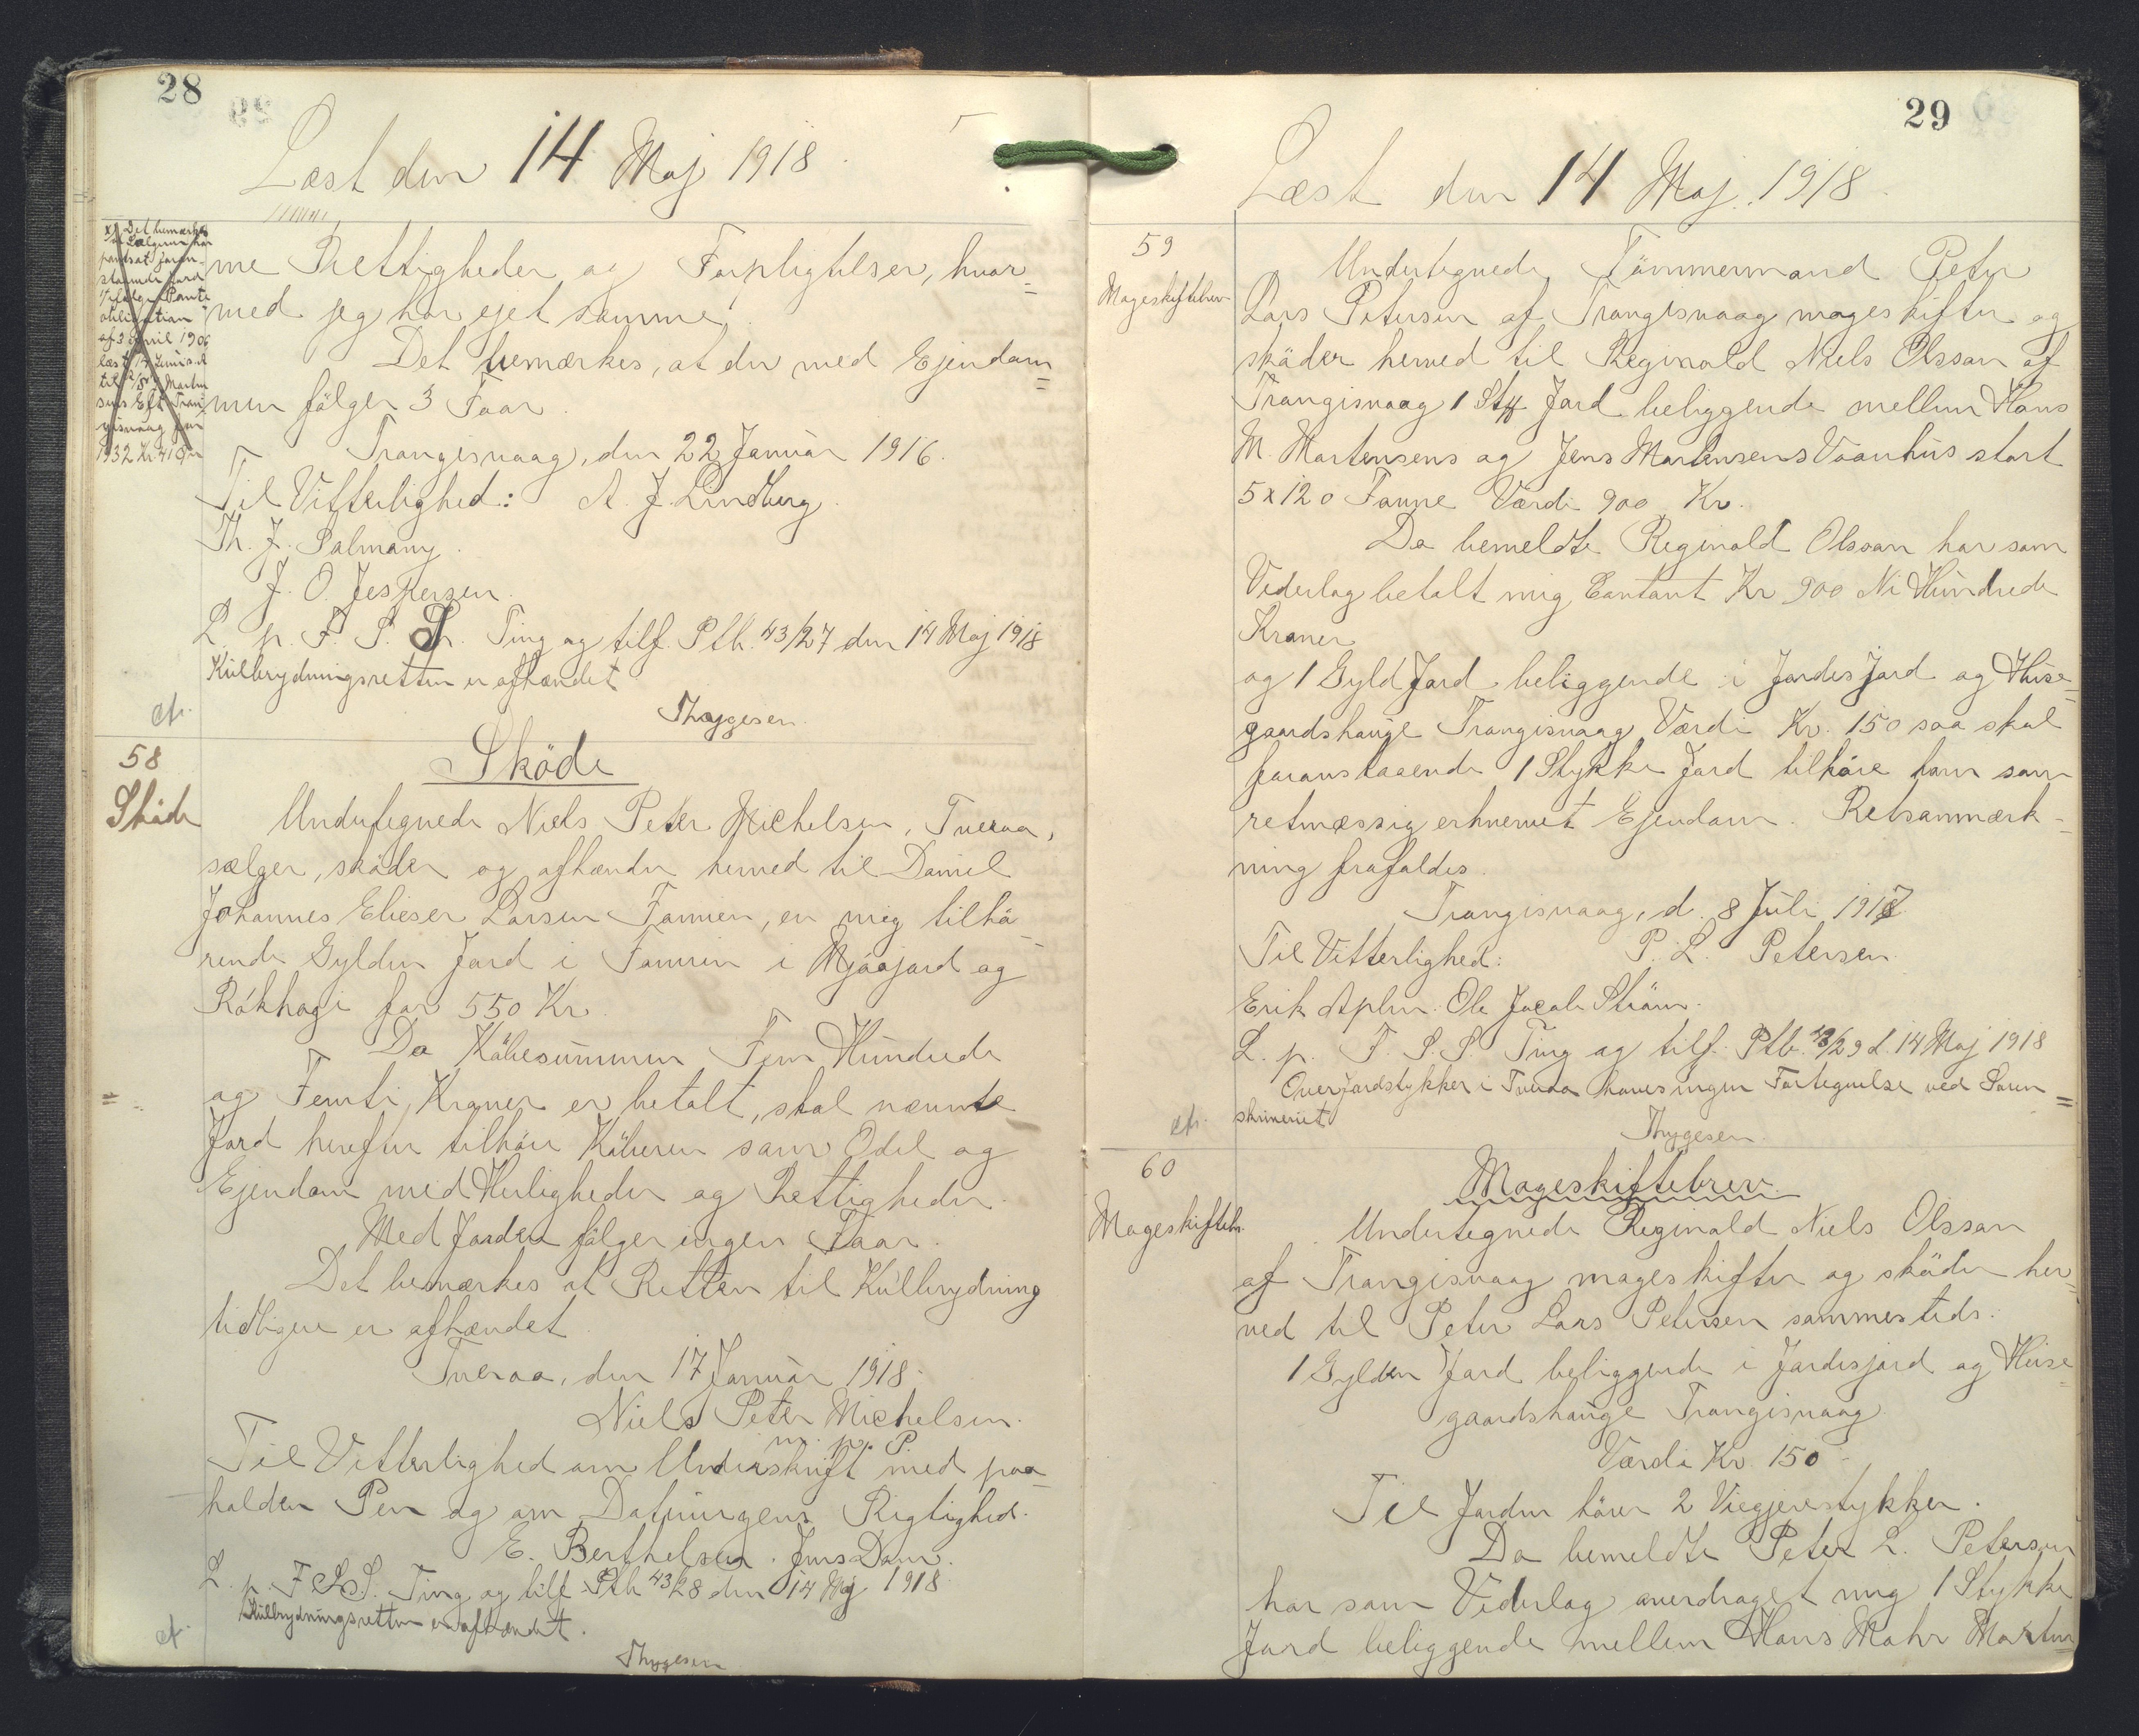 28
Læst den 14 Maj 1918.
x) Det bemærkes
at Sælgeren har
pantsat foran-
staaende Jord
ifølge Pante
obligation
af 3 April 1906
læst 14 Juni s. A.
til
1932 Kr
me Rettigheder og Forpligtelser, hvor=
med jeg har ejet samme.
Det bemærkes, at der med Ejendom=
men fölger 3 Faar.
Trangisvaag, den 22 Januar 1916.
Til Vitterlighed: A. J. Lindberg.
Th. J. Salmany.
J. O. Jespersen.
L. p. F. S. S. Ting og tilf. Ptb. 43/27 den 14 Maj 1918
Kulbrydningsretten er afhændet
Thygesen
cfr.
58
Sköde
Sköde
Undertegnede Niels Peter Michelsen, Tveraa,
sælger, sköder og afhænder herved til Daniel
Johannes Elieser Larsen Famien, en mig tilhö-
rende Gylden Jord i Famien i Mjáajord og
Rókhagi for 550 Kr.
Da Köbesummen Fem Hundrede
og Femti Kroner er betalt, skal nævnte
Jord herefter tilhöre Köberen som Odel og
Ejendom med Herligheder og Rettigheder.
Med Jorden fölger ingen Faar.
Det bemærkes at Retten til Kulbrydning
tidligere er afhændet
Tveraa, den 17 Januar 1918.
Niels Peter Michelsen.
m. p. P.
Til Vitterlighed om Underskrift med paa-
holden Pen og om Dateringens Rigtighed.
E. Berthelsen. Jens Dam.
L. p. F. S. S. Ting og tilf. Ptb. 43/28 den 14 Maj 1918
Kulbrydningsretten er afhændet.
Thygesen
cfr.
29
Læst den 14 Maj 1918.
59
Mageskiftebrev
Undertegnede Tömmermand Peter
Lars Petersen af Trangisvaag mageskifter og
sköder herved til Reginald Niels Olsson af
Trangisvaag 1 Stk Jord beliggende mellem Hans
M. Mortensens og Jens Mortensens Vaanhus stort
5 x 12 0 Favne Værdi 900 Kr.
Da bemeldte Reginald Olsson har som
Vederlag betalt mig Contant Kr 900 Ni Hundrede
Kroner
og 1 Gyld Jord beliggende i Jordesjord og Huse=
gaardshauge Trangisvaag Værdi Kr. 150 saa skal
foranstaaende 1 Stykke Jord tilhöre ham som
retmæssig erhvervet Ejendom. Retsanmærk-
ning frafaldes.
Trangisvaag, d. 8 Juli 1917
Til Vitterlighed: P. L. Petersen
Erik Ole Jacob Ström.
L. p. F. S. S. Ting og tilf. Ptb. 43/29 d. 14 Maj 1918
Over Jordstykker i Tveraa haves ingen Fortegnelse ved Soren=
skriveriet
Thygesen.
cfr.
60
Mageskiftebr.
Mageskiftebrev
Undertegnede Reginald Niels Olsson
af Trangisvaag mageskifter og sköder her-
ved til Peter Lars Petersen sammesteds.
1 Gylden Jord beliggende i Jordesjord og Huse=
gaardshauge Trangisvaag
Værdi Kr. 150
Til Jorden hörer 2 Viegjerestykker.
Da bemeldte Peter L. Petersen
har som Vederlag overdraget mig 1 Stykke
Jord beliggende mellem Hans Mohr Morten